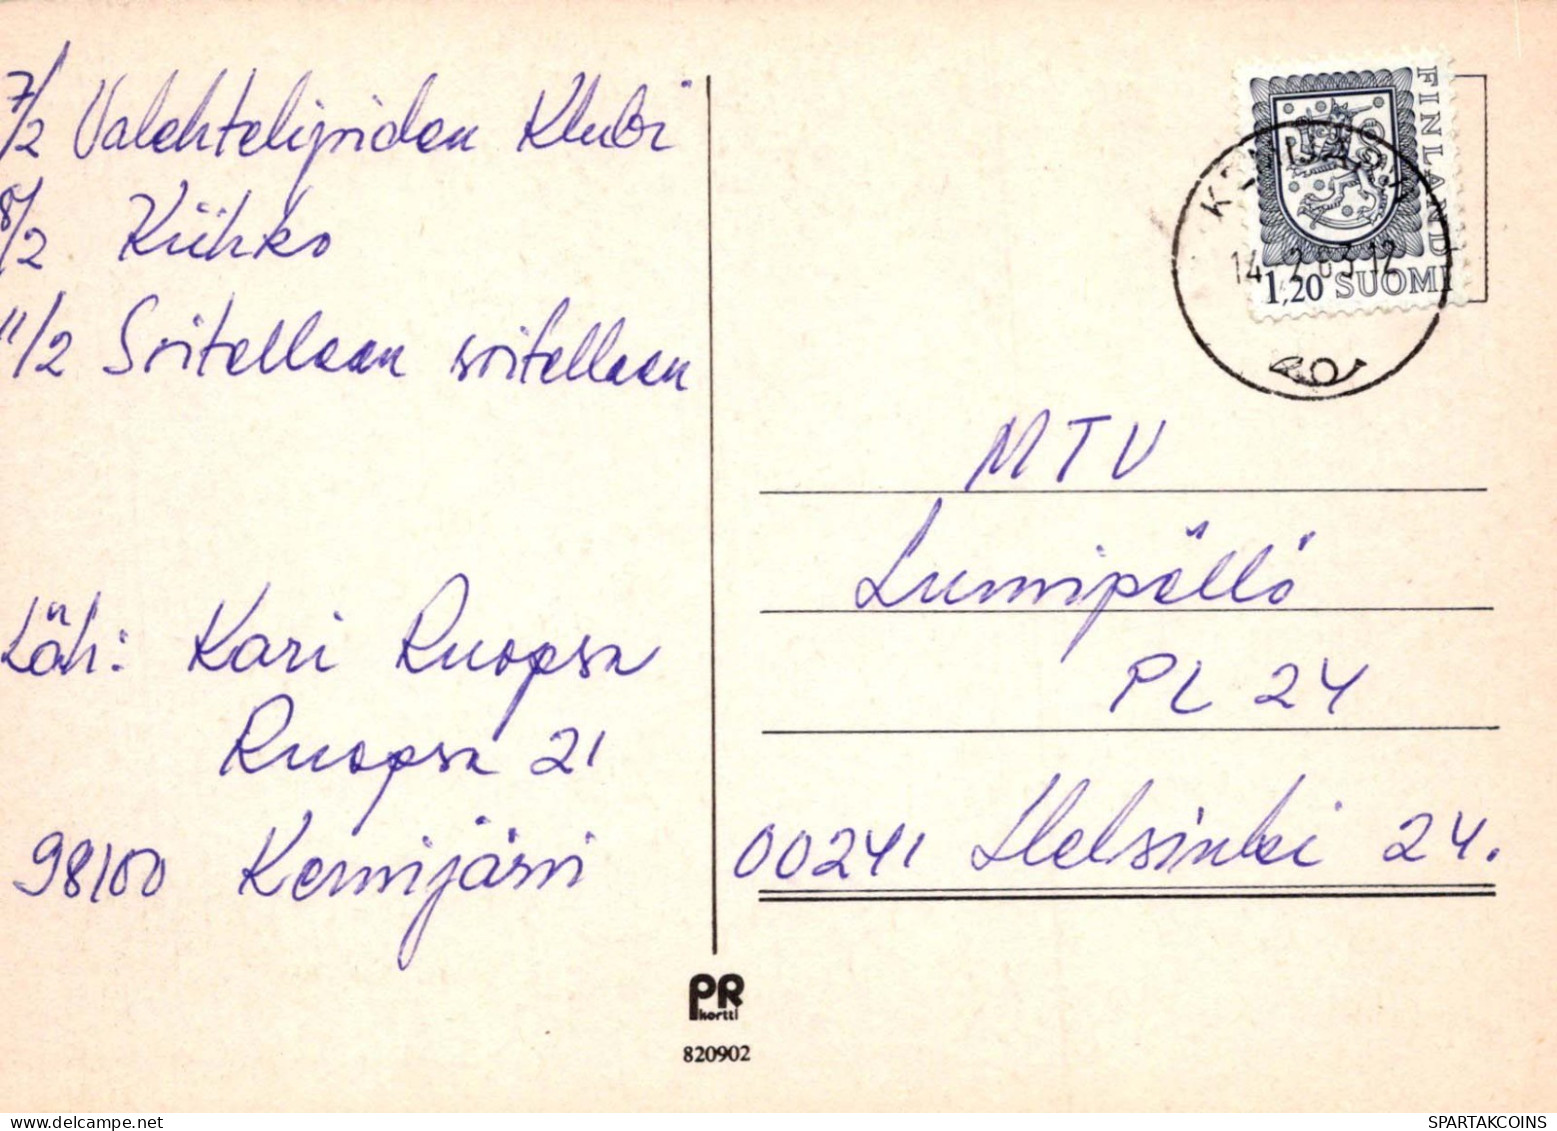 7/2 Valehtelijoiden Klubi
8/2 Kiihko
11/2 Soitellaan soitellaan
Läh: Kari Ruopsa
Ruopsa 21
98100 Kemijärvi
FINLAND
KEMIJÄRVI
14.2.83.12
1,20 SUOMI
MTV
Lumipallo
PL 24
00241 Helsinki 24.
PR
kortti
820902
delcampe.net
SPARTAKCOINS